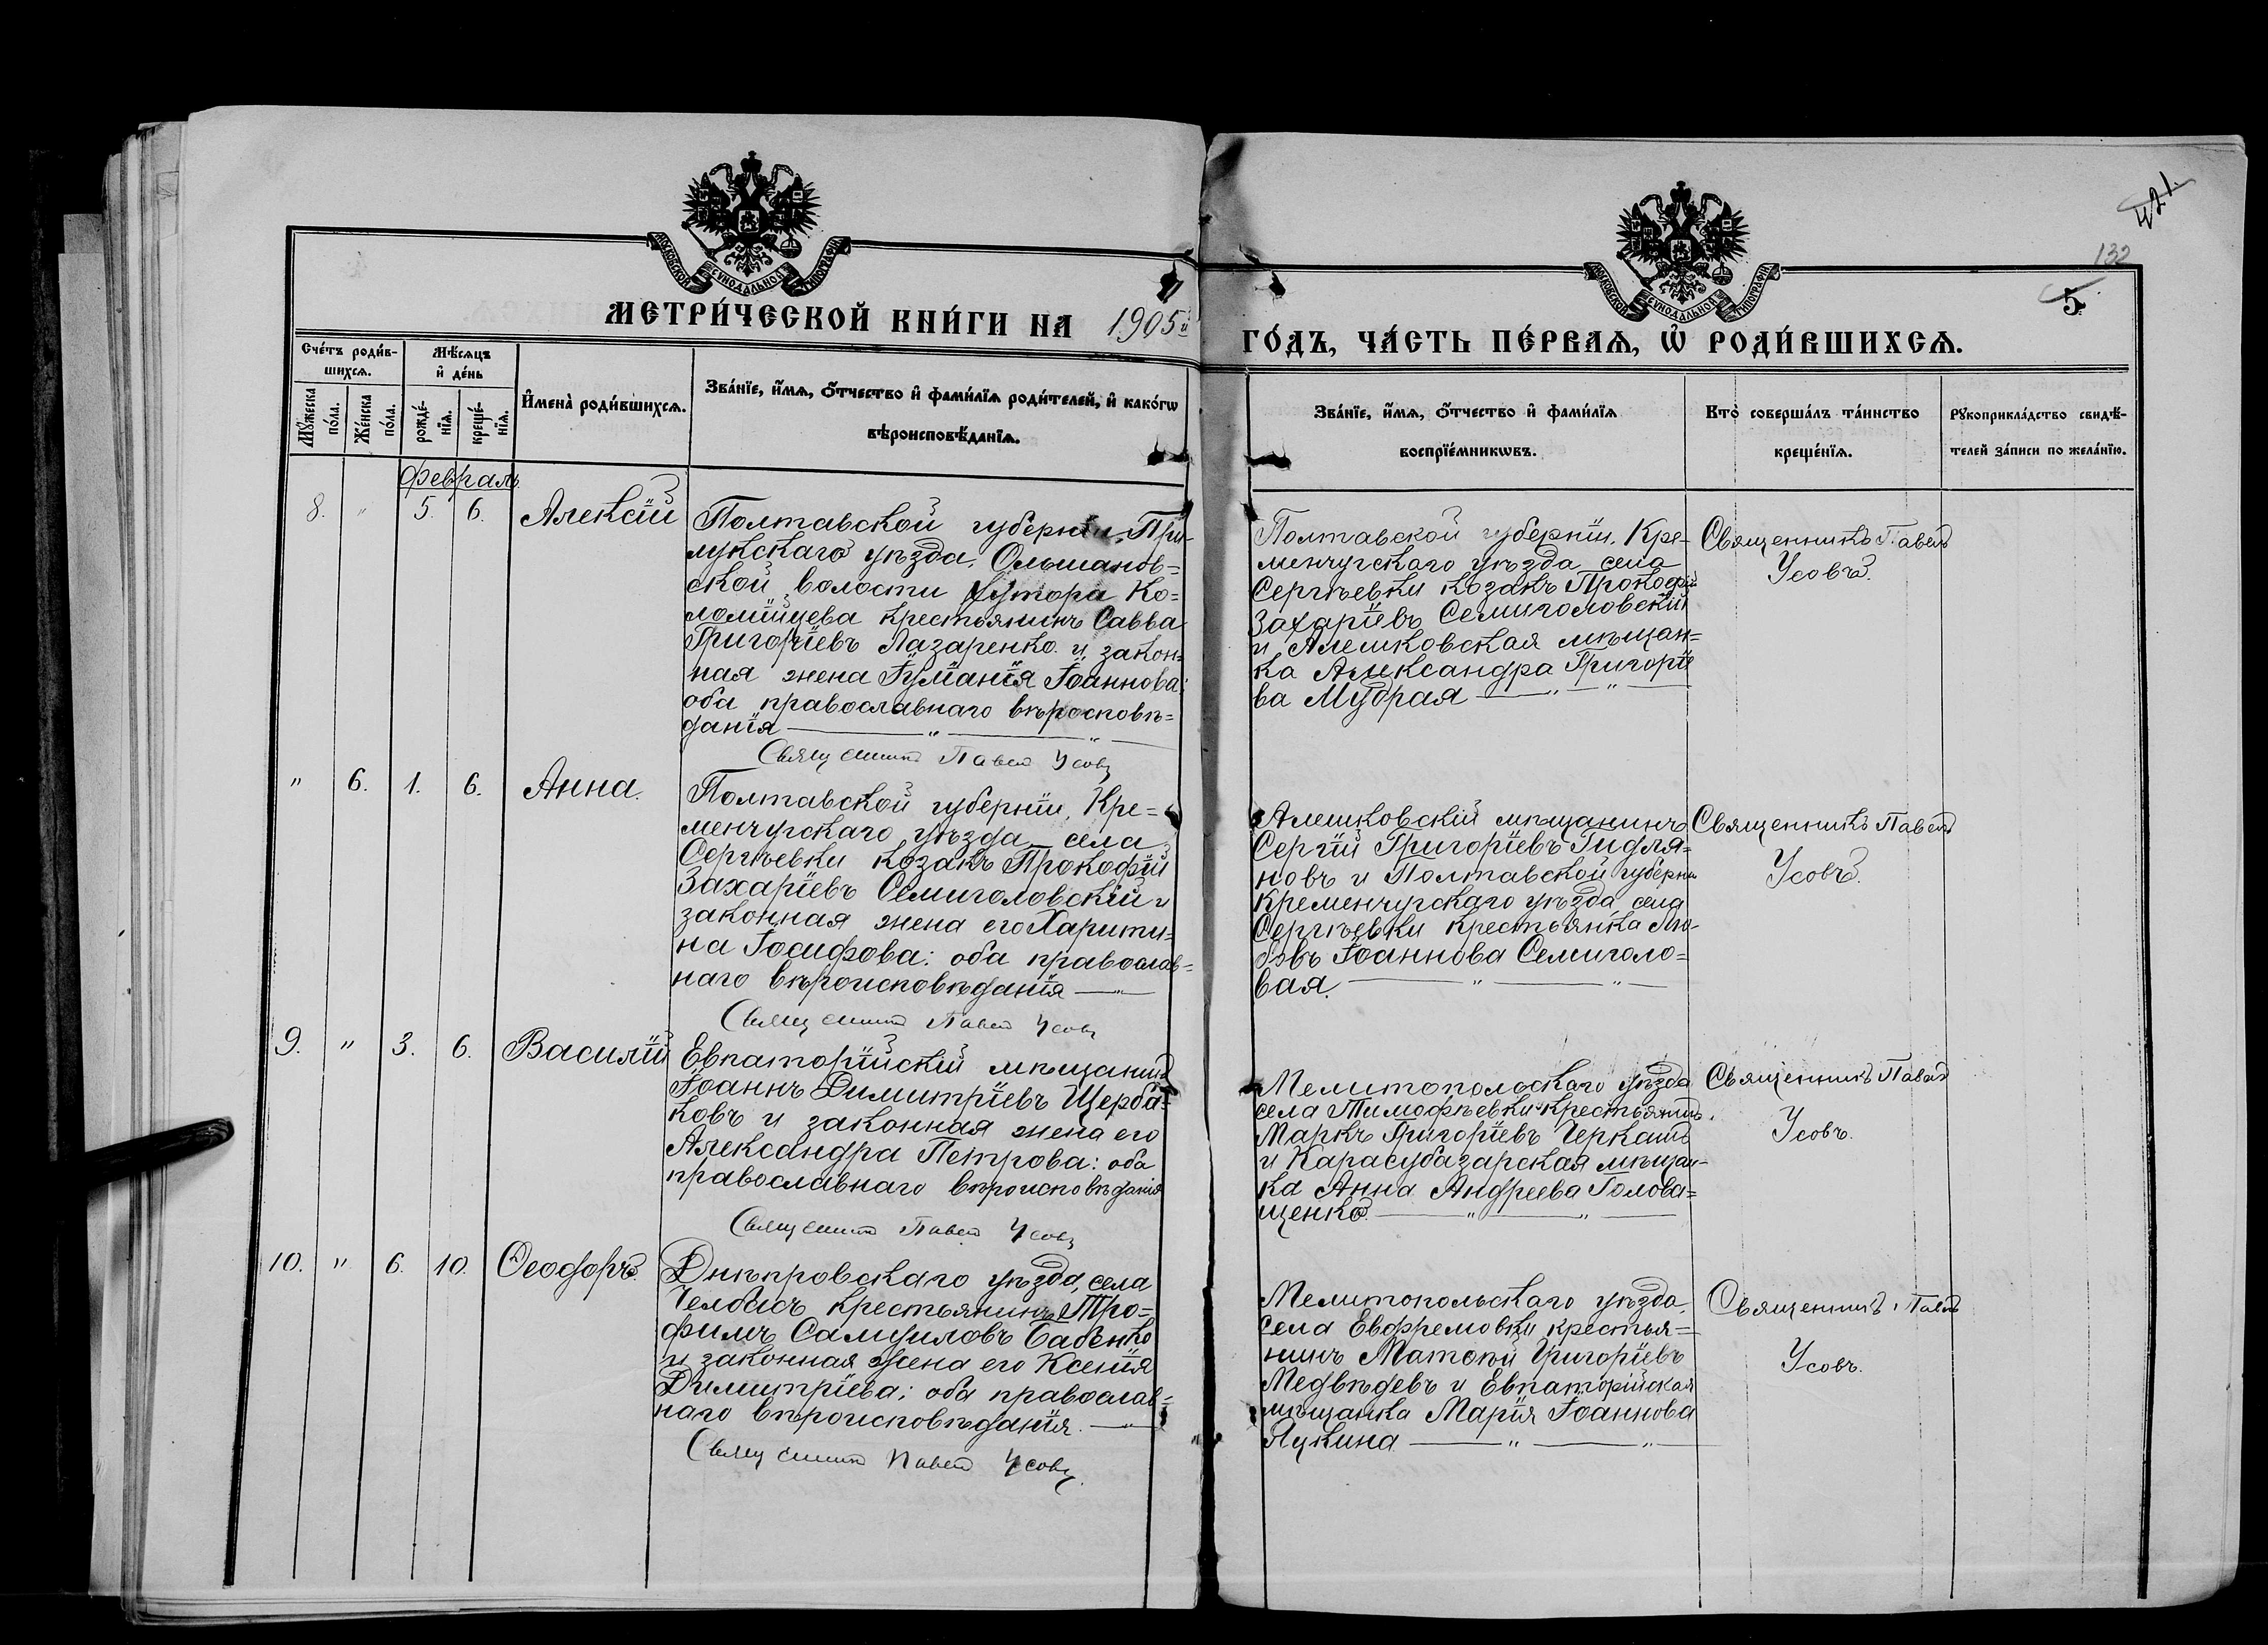 421.
132
5.
МОСКОВСКОЙ СѴНОДАЛЬНОЙ ТИПОГРАФІИ
МОСКОВСКОЙ СѴНОДАЛЬНОЙ ТИПОГРАФІИ
МЕТРИ́ЧЕСКОЙ КНИ́ГИ НА 1905й
ГО́ДЪ, ЧА́СТЬ ПЕ́РВАѦ, Ѡ҆ РОДИ́ВШИХСѦ.
Сче́тъ роди́в-
шихсѧ.
Мꙋ́жеска по́ла.
Же́нска по́ла.
Мѣ́сѧцъ
и҆ де́нь
рожде́-
нїѧ.
креще́-
нїѧ.
И҆мена̀ роди́вшихсѧ.
Зва́нїе, и҆́мѧ, ѻ҆́тчество и҆ фами́лїѧ роди́телей, и҆ како́гѡ
вѣроисповѣ́данїѧ.
Зва́нїе, и҆́мѧ, ѻ҆́тчество и҆ фами́лїѧ
воспрїе́мникѡвъ.
Кто̀ соверша́лъ та́инство
креще́нїѧ.
Рꙋкоприкла́дство свидѣ́-
телей за́писи по жела́нїю.
Февраль
8. " 5. 6. Алексій
Полтавской губерніи, При-
лукскаго уѣзда, Ольшанов=
ской волости хутора Ко=
ломійцева крестьянинъ Савва
Григоріевъ Лазаренко и закон=
ная жена Іуліанія Іоаннова:
оба православнаго вѣроисповѣ=
данія — " — "
Священникъ Павелъ Усовъ
Полтавской губерніи, Кре-
менчугскаго уѣзда села
Сергѣевки козакъ Прокофій
Захаріевъ Семиголовскій
и Алешковская мѣщан=
ка Александра Григоріе
ва Мудрая — " — " —
Священникъ Павелъ
Усовъ.
" 6. 1. 6. Анна.
Полтавской губерніи, Кре=
менчугскаго уѣзда села
Сергѣевки козакъ Прокофій
Захаріевъ Семиголовскій и
законная жена его Харити=
на Іосифова: оба православ=
наго вѣроисповѣданія — "
Священникъ Павелъ Усовъ
Алешковскій мѣщанинъ
Сергій Григоріевъ Гидля=
новъ и Полтавской губерніи
Кременчугскаго уѣзда села
Сергѣевки крестьянка Лю-
бовь Іоаннова Семиголо=
вая. — " — " —
Священникъ Павелъ
Усовъ.
9. " 3. 6. Василій
Евпаторійскій мѣщанинъ
Іоаннъ Димитріевъ Щерба=
ковъ и законная жена его
Александра Петрова: оба
православнаго вѣроисповѣданія
Священникъ Павелъ Усовъ
Мелитопольскаго уѣзда
села Тимофѣевки крестьянинъ
Маркъ Григоріевъ Черкашъ
и Карасубазарская мѣщан-
ка Анна Андреева Голова=
щенко. — " — " —
Священникъ Павелъ
Усовъ.
10. " 6. 10. Ѳеодоръ
Днѣпровскаго уѣзда, села
Челбасъ крестьянинъ Тро=
фимъ Самуиловъ Бабенко
и законная жена его Ксенія
Димитріева; оба православ=
наго вѣроисповѣданія. — "
Священникъ Павелъ Усовъ.
Мелитопольскаго уѣзда,
села Ефремовки крестья=
нинъ Матѳей Григоріевъ
Медвѣдевъ и Евпаторійская
мѣщанка Марія Іоаннова
Лукина — " — " —
Священникъ Павелъ
Усовъ.